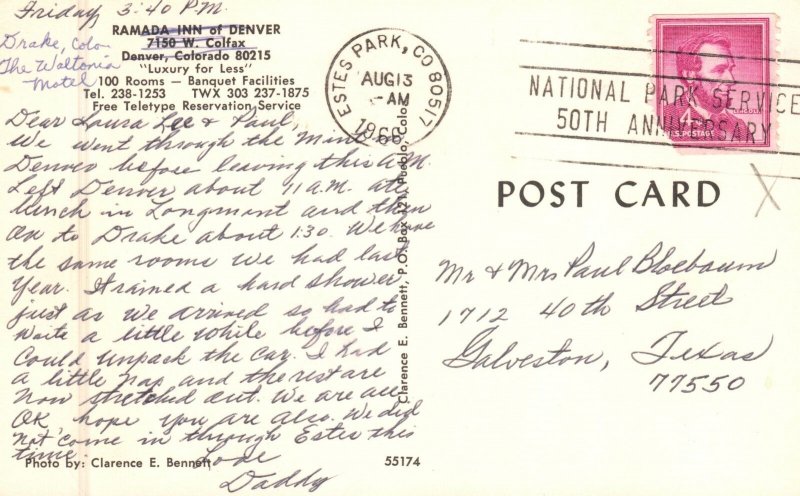 Friday 3:40 P.M.
RAMADA INN of DENVER
7150 W. Colfax
Denver, Colorado 80215
"Luxury for Less"
100 Rooms — Banquet Facilities
Tel. 238-1253 TWX 303 237-1875
Free Teletype Reservation Service
Drake, Colo
The Waltonia
Motel
Dear Laura Lee & Paul,
We went through the Mint
Denver before leaving this A.M.
Left Denver about 11 A.M. ate
lunch in Longmont and then
on to Drake about 1:30. We have
the same rooms we had last
year. It rained a hard shower
just as we arrived so had to
waite a little while before I
could unpack the car. I had
a little nap and the rest are
now stretched out. We are all
OK hope you are also. We did
not come in through Estes this
time. Love
Daddy
Photo by: Clarence E. Bennett
55174
Clarence E. Bennett, P.O. Box Pueblo, Colo
ESTES PARK, CO 80517
AUG 13
AM
1966
NATIONAL PARK SERVICE
50TH ANNIVERSARY
4¢
U.S. POSTAGE
POST CARD
X
Mr & Mrs Paul Bloebaum
1712 40th Street
Galveston, Texas
77550